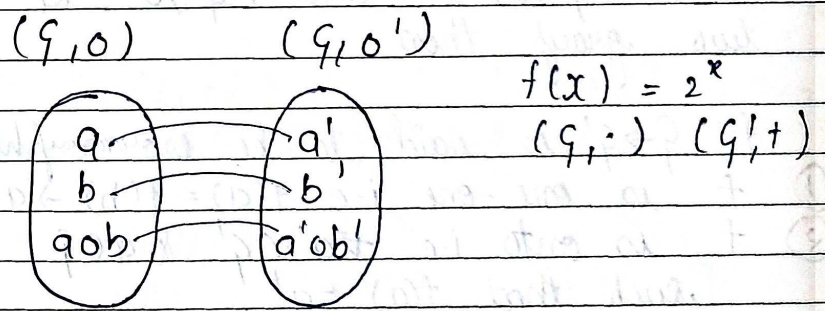 (G, o) (G, o')
f(x) = 2^x
(G, ·) (G', +)
a a'
b b'
aob a'ob'